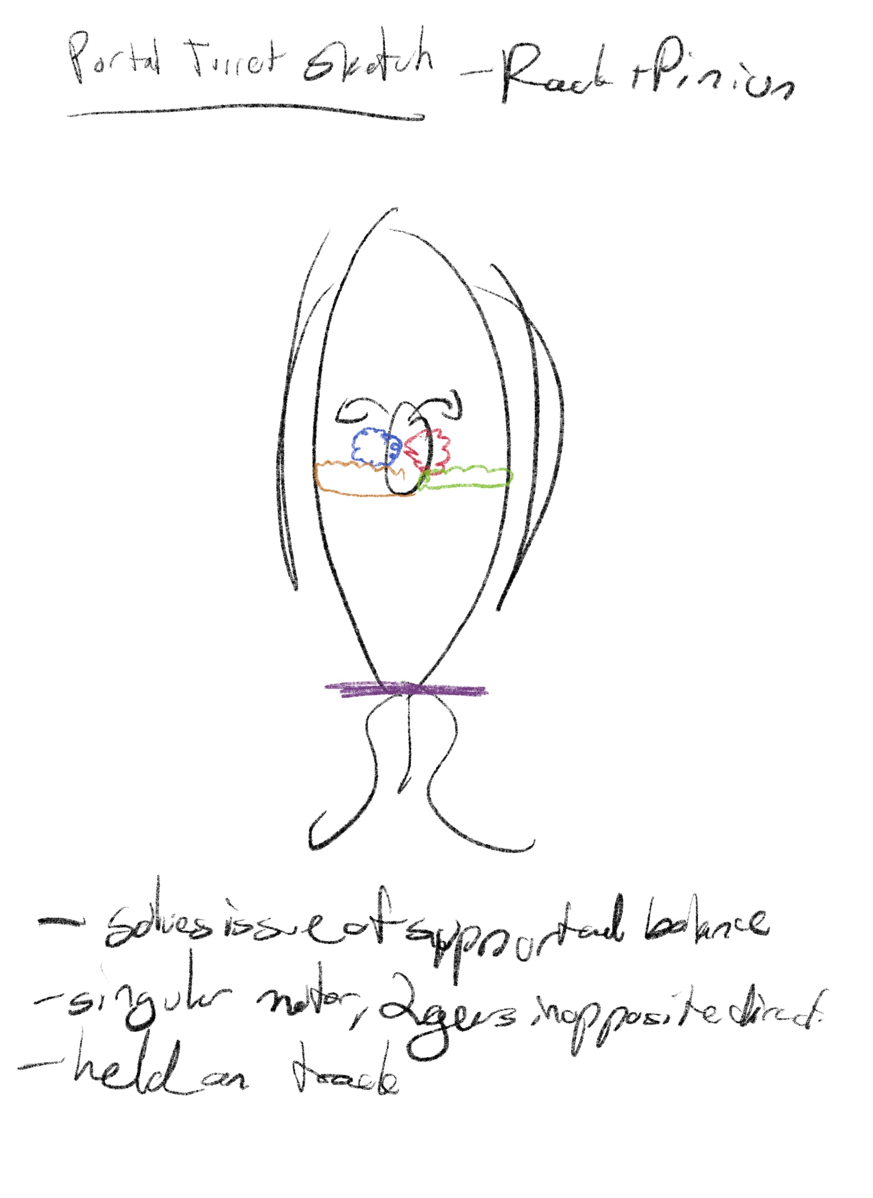 Portal Turret Sketch - Rack + Pinion
- solves issue of support and balance
- singular motor, 2 gears in opposite direct.
- held on track